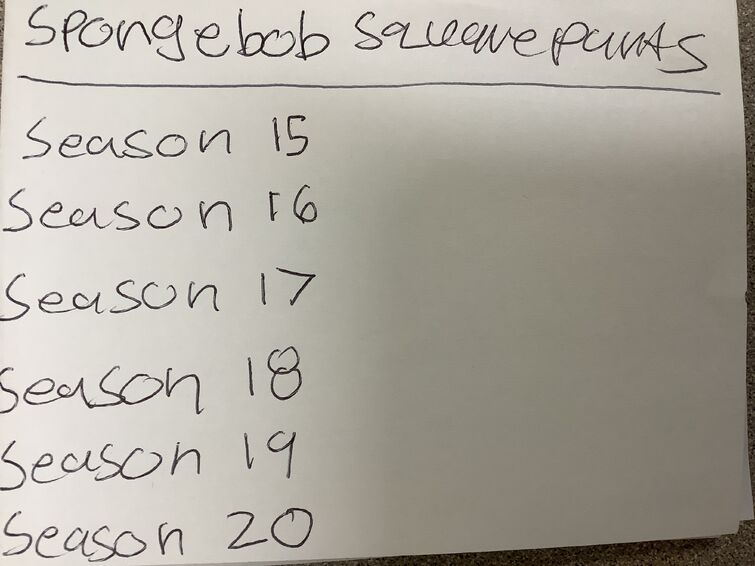 Spongebob Squarepants
Season 15
Season 16
Season 17
Season 18
Season 19
Season 20